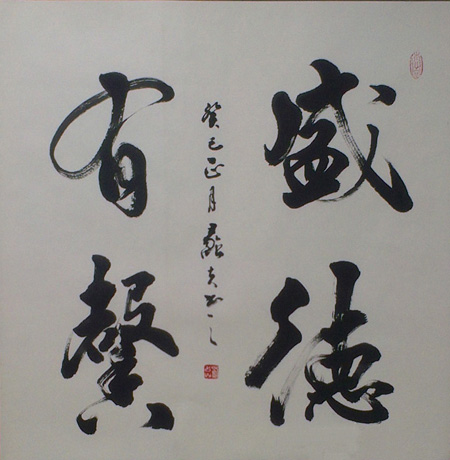 盛德
有馨
癸巳正月